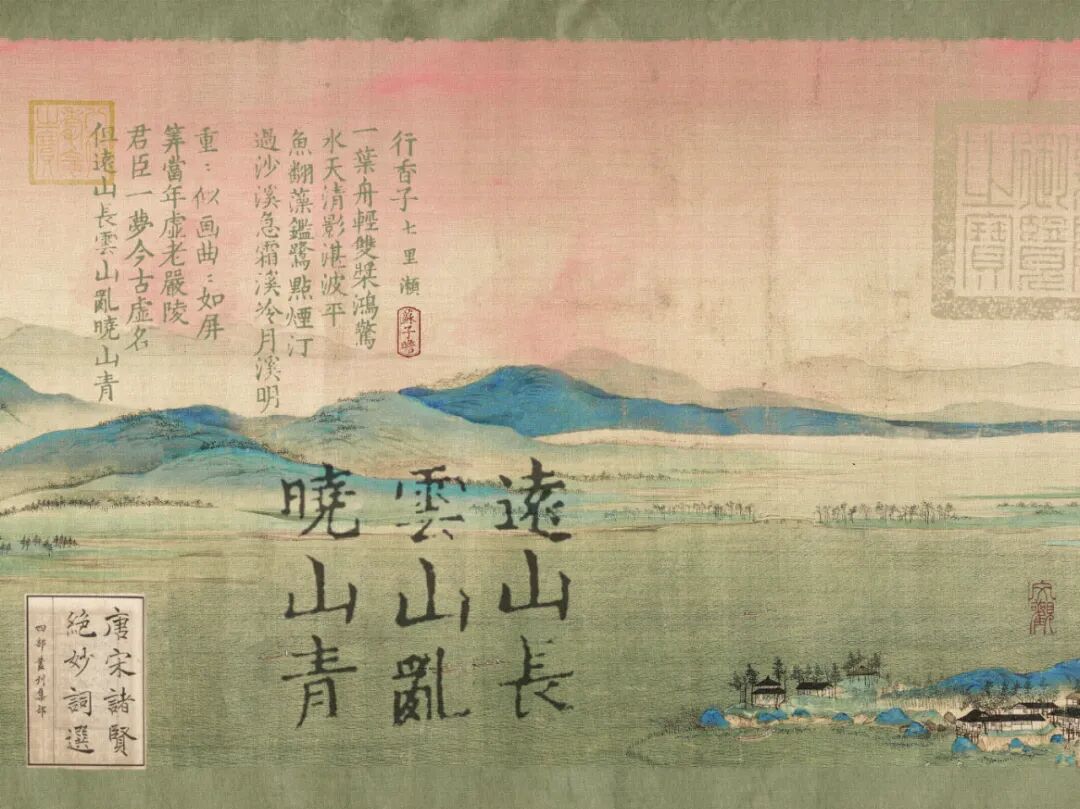 行香子 七里瀨
蘇子瞻
一葉舟輕雙槳鴻驚
水天清影湛波平
魚翻藻鑑鷺點煙汀
過沙溪急霜溪冷月溪明
重〻似画曲〻如屏
筭當年虛老嚴陵
君臣一夢今古虛名
但遠山長雲山亂曉山青
御覽
之寶
遠山長
雲山亂
曉山青
唐宋諸賢
絕妙詞選
四部叢刊集部